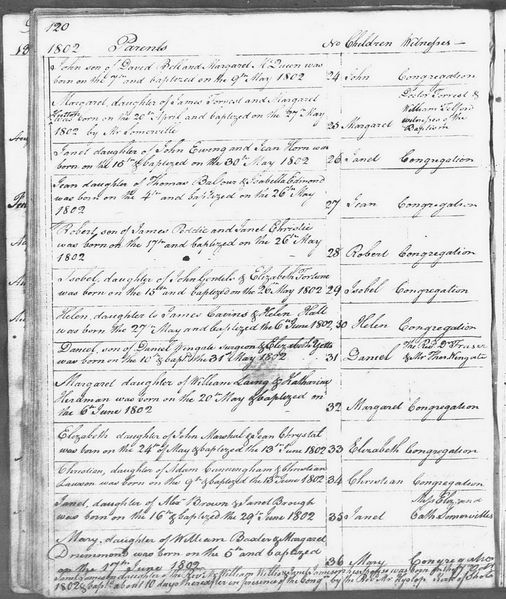 120
1802 Parents No Children Witnesses
John son of David Bell and Margaret McQueen was
born on the 7th and baptized on the 9th May 1802 24 John Congregation
Margaret, daughter of James Forrest and Margaret
was born on the 20th April and baptized on the 27 May
1802 by Mr Somerville 25 Margaret
Doctor Forrest &
William
witnesses of the
Baptism
Janet daughter of John Ewing and Jean Horn was
born on the 16th & baptized on the 30th May 1802 26 Janet Congregation
Jean daughter of Thomas Balfour & Isabella Edmond
was born on the 4th and baptized on the 26th May
1802 27 Jean Congregation
Robert, son of James Peddie and Janet Christie
was born on the 17th and baptized on the 26th May
1802 28 Robert Congregation
Isobel, daughter of John & Elizabeth Fortune
was born on the 15th and baptized on the 26th May 1802 29 Isobel Congregation
Helen, daughter to James & Helen Hall
was born the 27 May and baptized the 6 June 1802, 30 Helen Congregation
Daniel, son of Daniel Wingate Surgeon & Elizabeth
was born on the 10th & bapt. the 31st May 1802 31 Daniel
The Revd D Fraser
& Mr Thos Wingate
Margaret daughter of William Laing & Katharine
Herdman was born on the 20th May & baptized on
the 6th June 1802 32 Margaret Congregation
Elizabeth daughter of John Marshal & Jean Chrystal
was born on the 24th of May & baptized the 13th June 1802 33 Elizabeth Congregation
Christian, daughter of Adam Cunningham & Christian
Lawson was born on the 9th & baptized the 13th June 1802 34 Christian Congregation
Janet, daughter of Alexr Brown & Janet Brough
was born on the 16th & baptized the 29th June 1802 35 Janet
Miss Eliz. and
Cath Somervilles
Mary, daughter of William Baxter & Margaret
was born on the 5th and baptized
on the 17th June 1802 36 Mary Congregation
daughter of the Revd Mr William
1802 & bapt. about 10 days thereafter in presence of the Cong. by the Revd Mr Hyslop